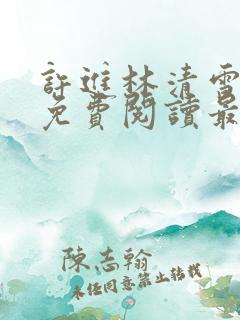 許進林清雪
免費閱讀最
陳志翰
未經同意禁止轉載